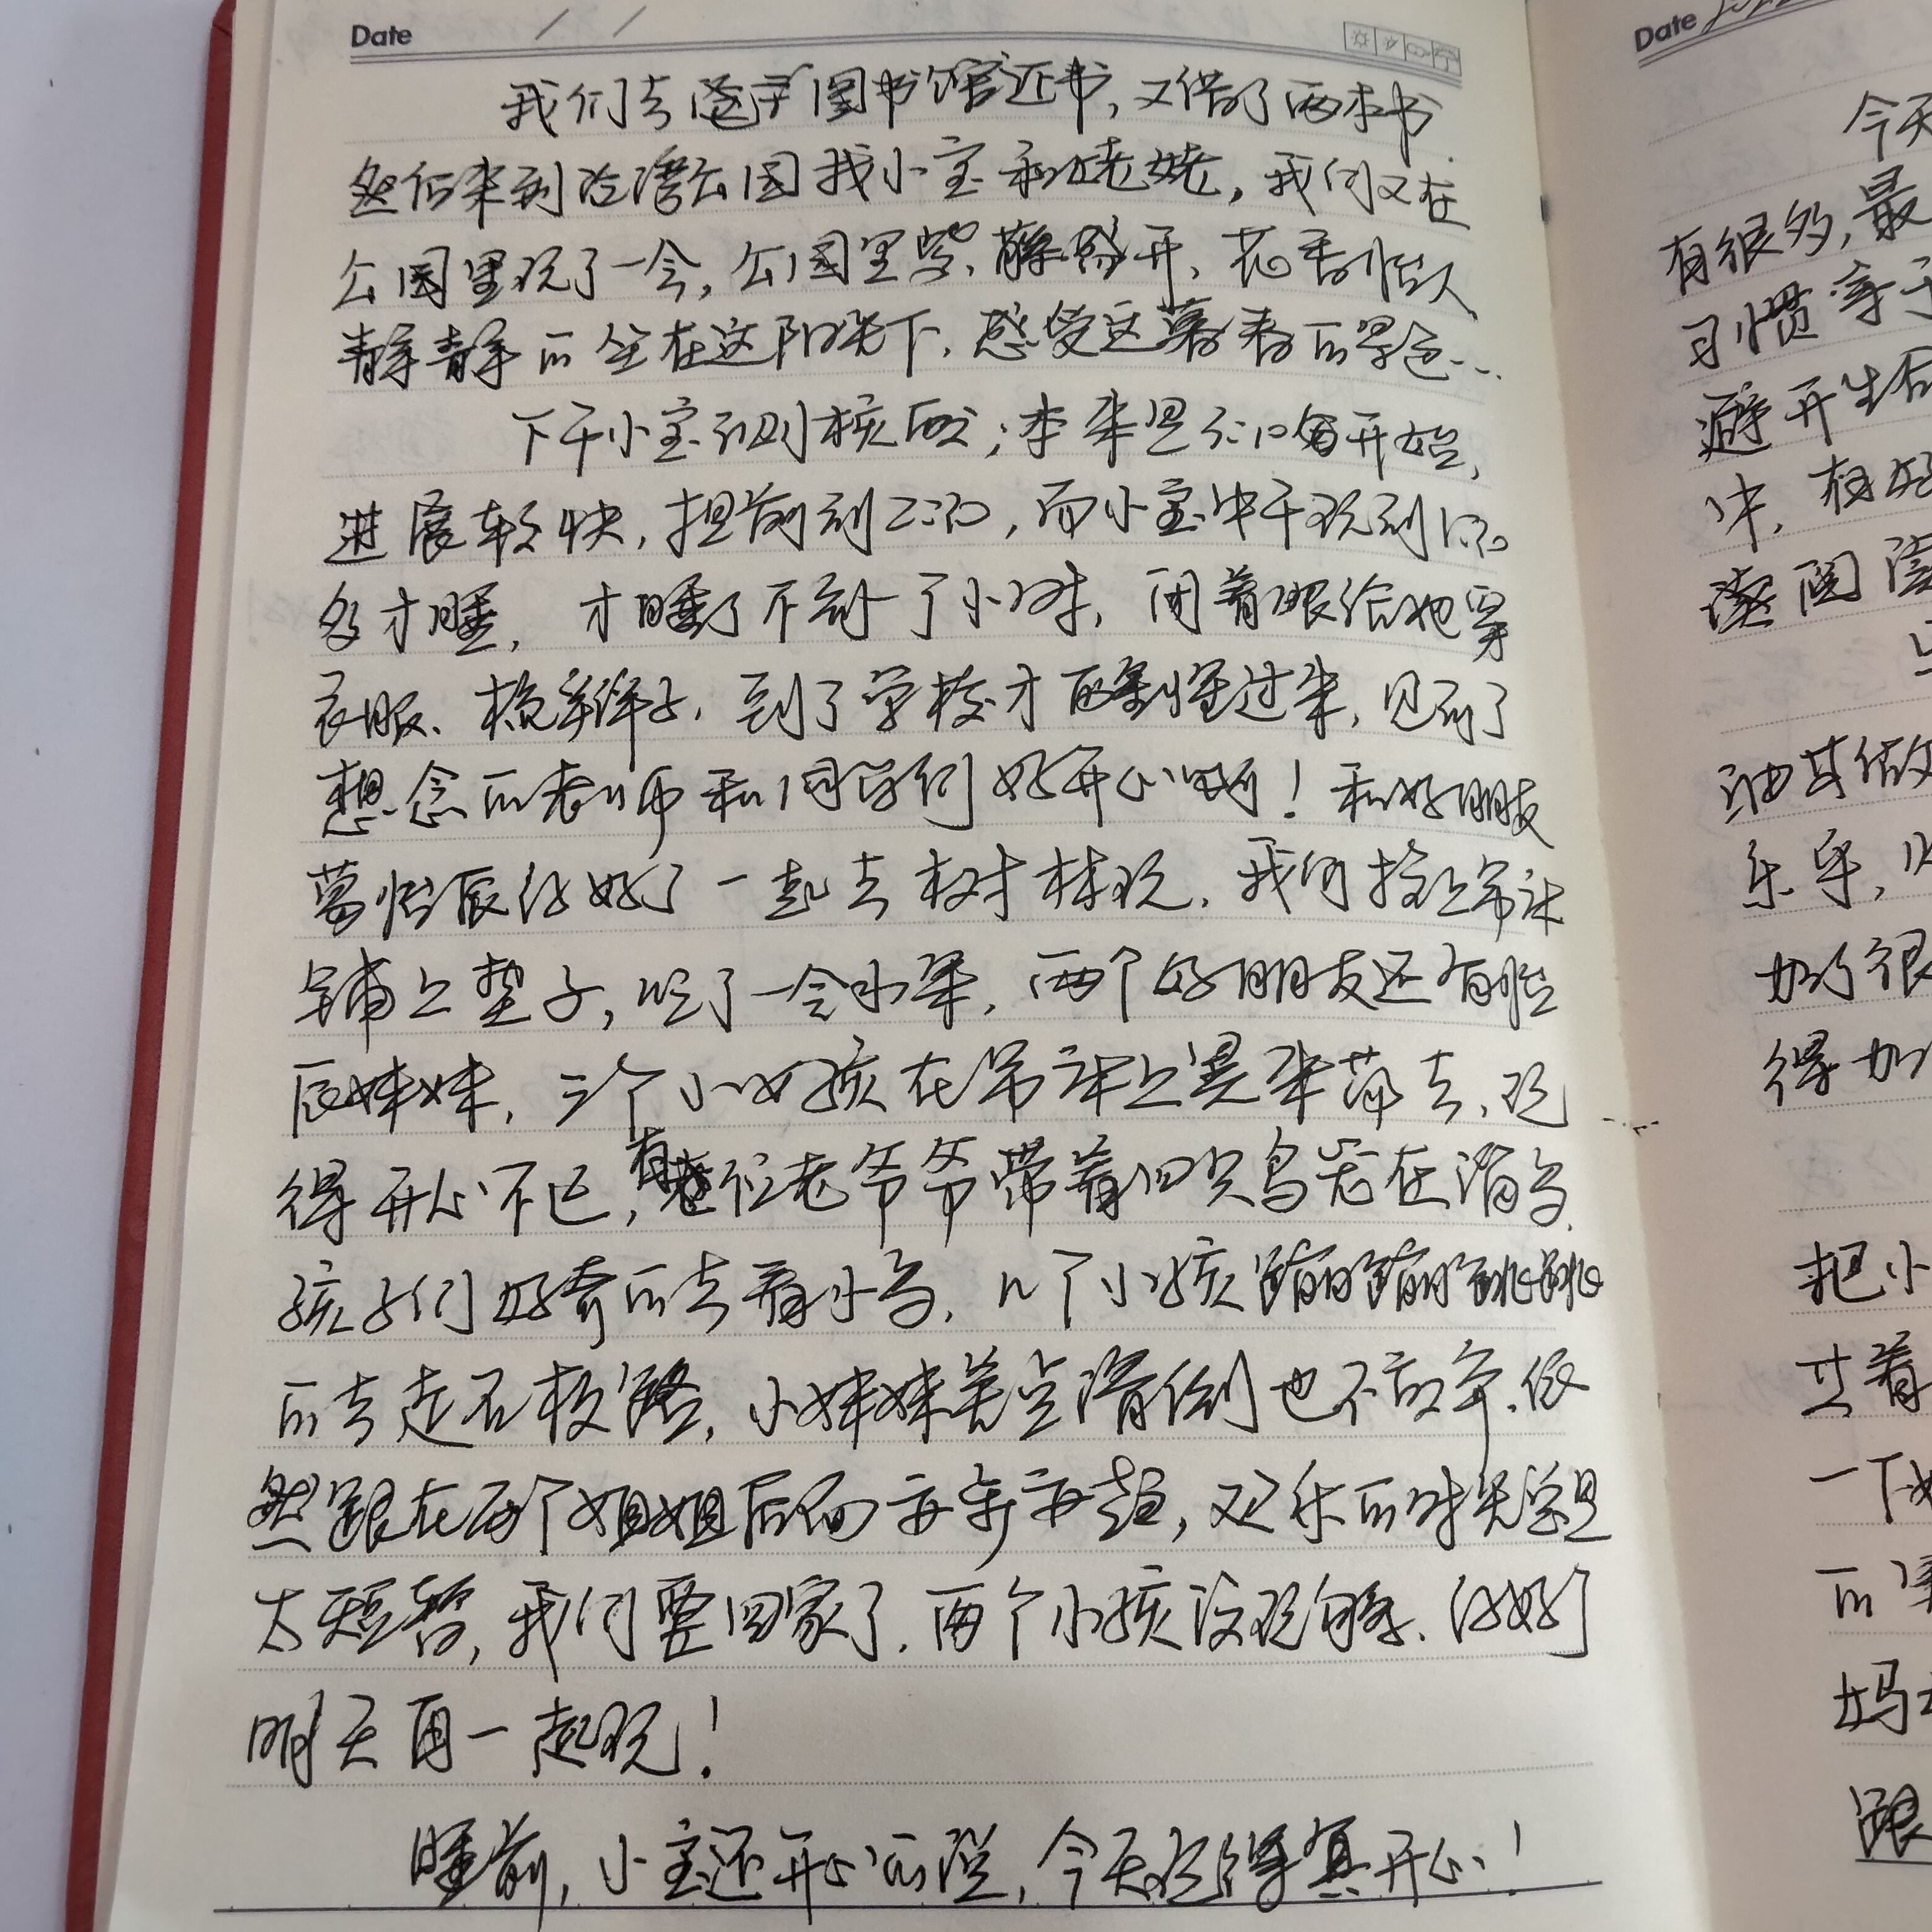 Date / /
我们去 图书馆还书，又借了两本书
然后来到 公园找小宝和姥姥，我们又在
公园里玩了一会，公园里紫藤盛开，花香怡人
静静的坐在这阳光下，感受这暮春的景色…
下午小宝 核酸；本来是 开始，
进展较快，提前到2:30，而小宝中午玩到1:30
多才睡，才睡了不到一个小时，闭着眼给她穿
衣服、梳辫子，到了学校才 醒过来，见到了
想念的老师和同学们好开心啊！和好朋友
葛怡辰约好了一起去树林玩，我们拴上吊床
铺上垫子，吃了一会水果，两个好朋友还有怡
辰妹妹，三个小女孩在吊床上晃来荡去，玩
得开心不已，有 位老爷爷带着四只鸟笼在溜鸟，
孩子们好奇的去看小鸟，几个小孩蹦蹦跳跳
的去走石板路，小妹妹差点滑倒也不放弃，依
然跟在两个姐姐后面亦步亦趋，欢乐的时光总是
太短暂，我们要回家了，两个小孩没玩够，约好了
明天再一起玩！
睡前，小宝还开心的说，今天玩得真开心！
Date
今天
有很多，最
习惯拿手
避开生
中，有好
读
动其做
乐乐，
加了很
得加
把小
共着
一下
的
妈
跟